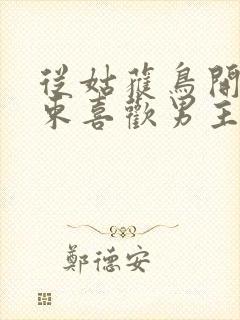 從姑獲鳥開
東喜歡男主
鄭德安